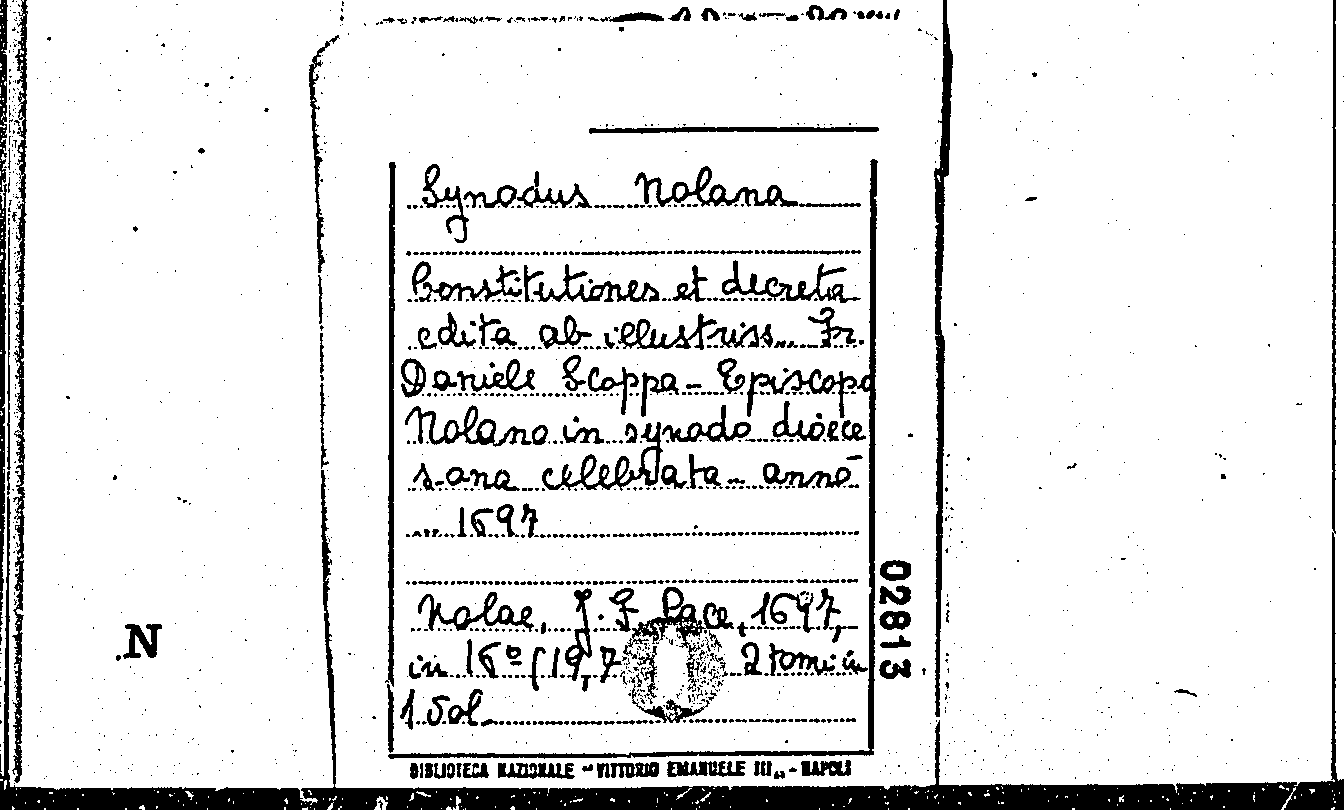 Synodus Nolana
Constitutiones et decreta
edita ab illustriss... Fr.
Daniele Scoppa - Episcopo
Nolano in synodo dioece
sana celebrata - anno
... 1697
Nolae, J. F. Pace, 1697,
in 16º (19,7 2 tomi in
1 vol.
BIBLIOTECA NAZIONALE - VITTORIO EMANUELE III,, - NAPOLI
02813
.N